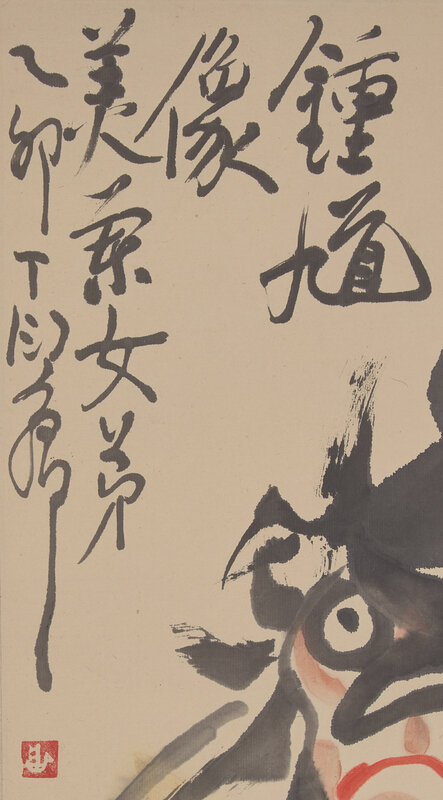 鍾馗
像
美蘭女弟
乙卯丁衍庸